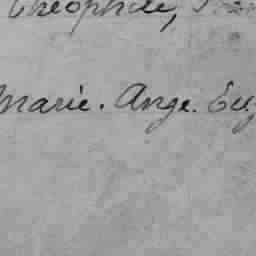 Théophile,
Marie. Ange. Eug